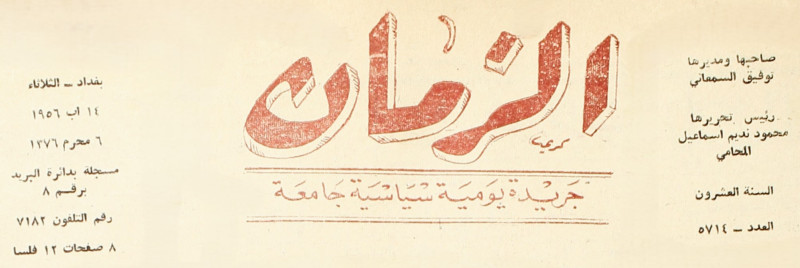 صاحبها ومديرها
توفيق السمعاني
رئيس تحريرها
محمود نديم اسماعيل
المحامي
السنة العشرون
العدد – ٥٧١٤
الزمان
جريدة يومية سياسية جامعة
بغداد – الثلاثاء
١٤ اب ١٩٥٦
٦ محرم ١٣٧٦
مسجلة بدائرة البريد
برقم ٨
رقم التلفون ٧١٨٢
٨ صفحات ١٢ فلسا